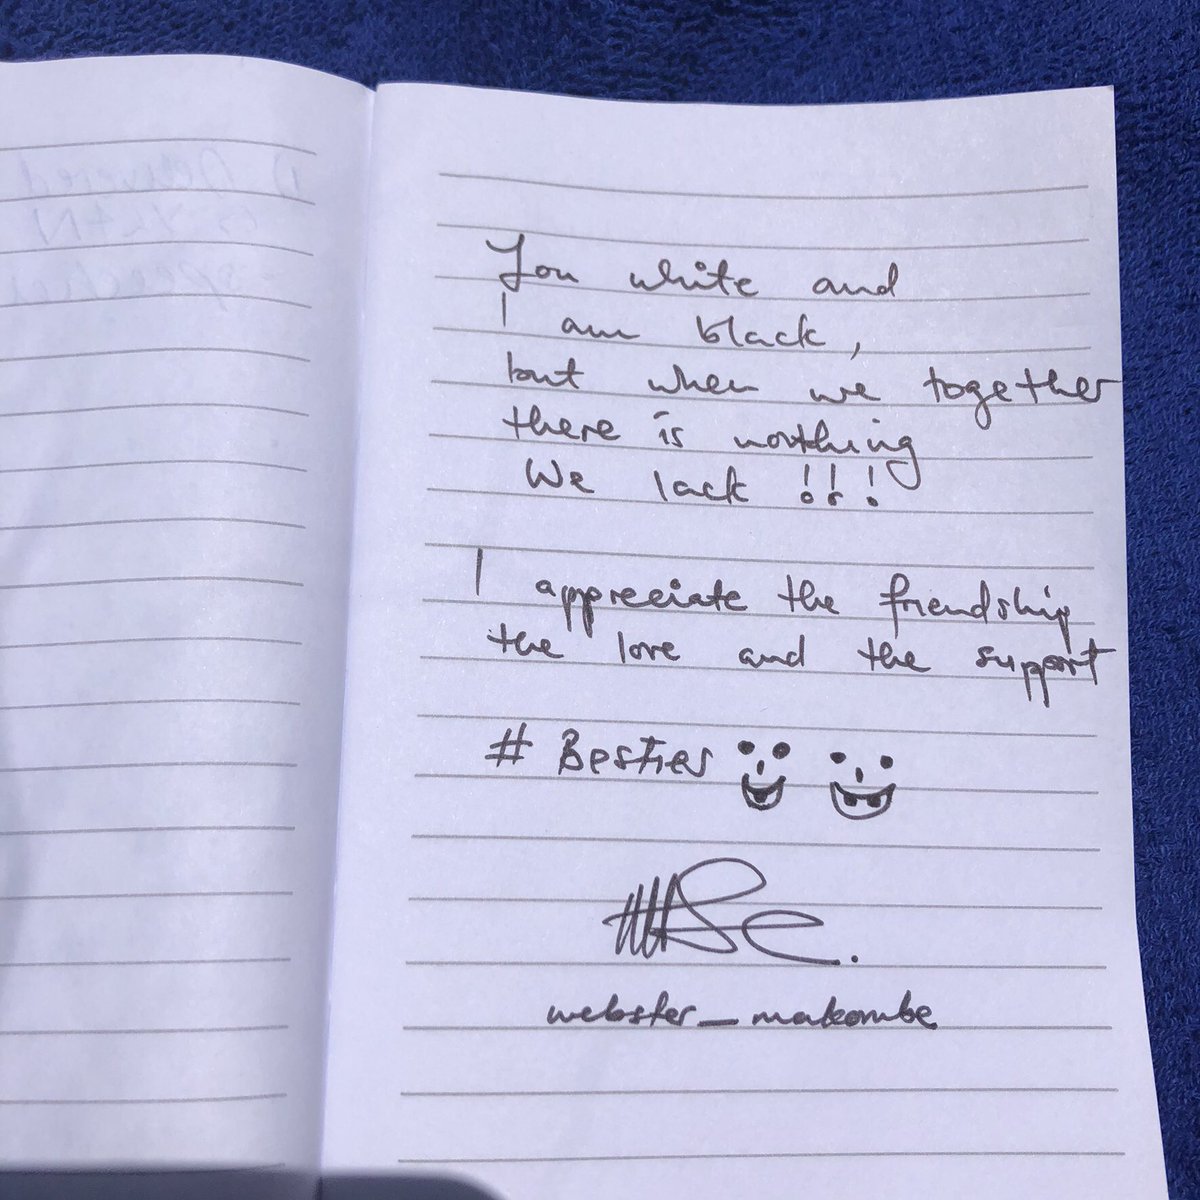 You white and
I am black,
but when we together
there is nothing
We lack !!!
I appreciate the friendship
the love and the support
# Besties
webster_makombe